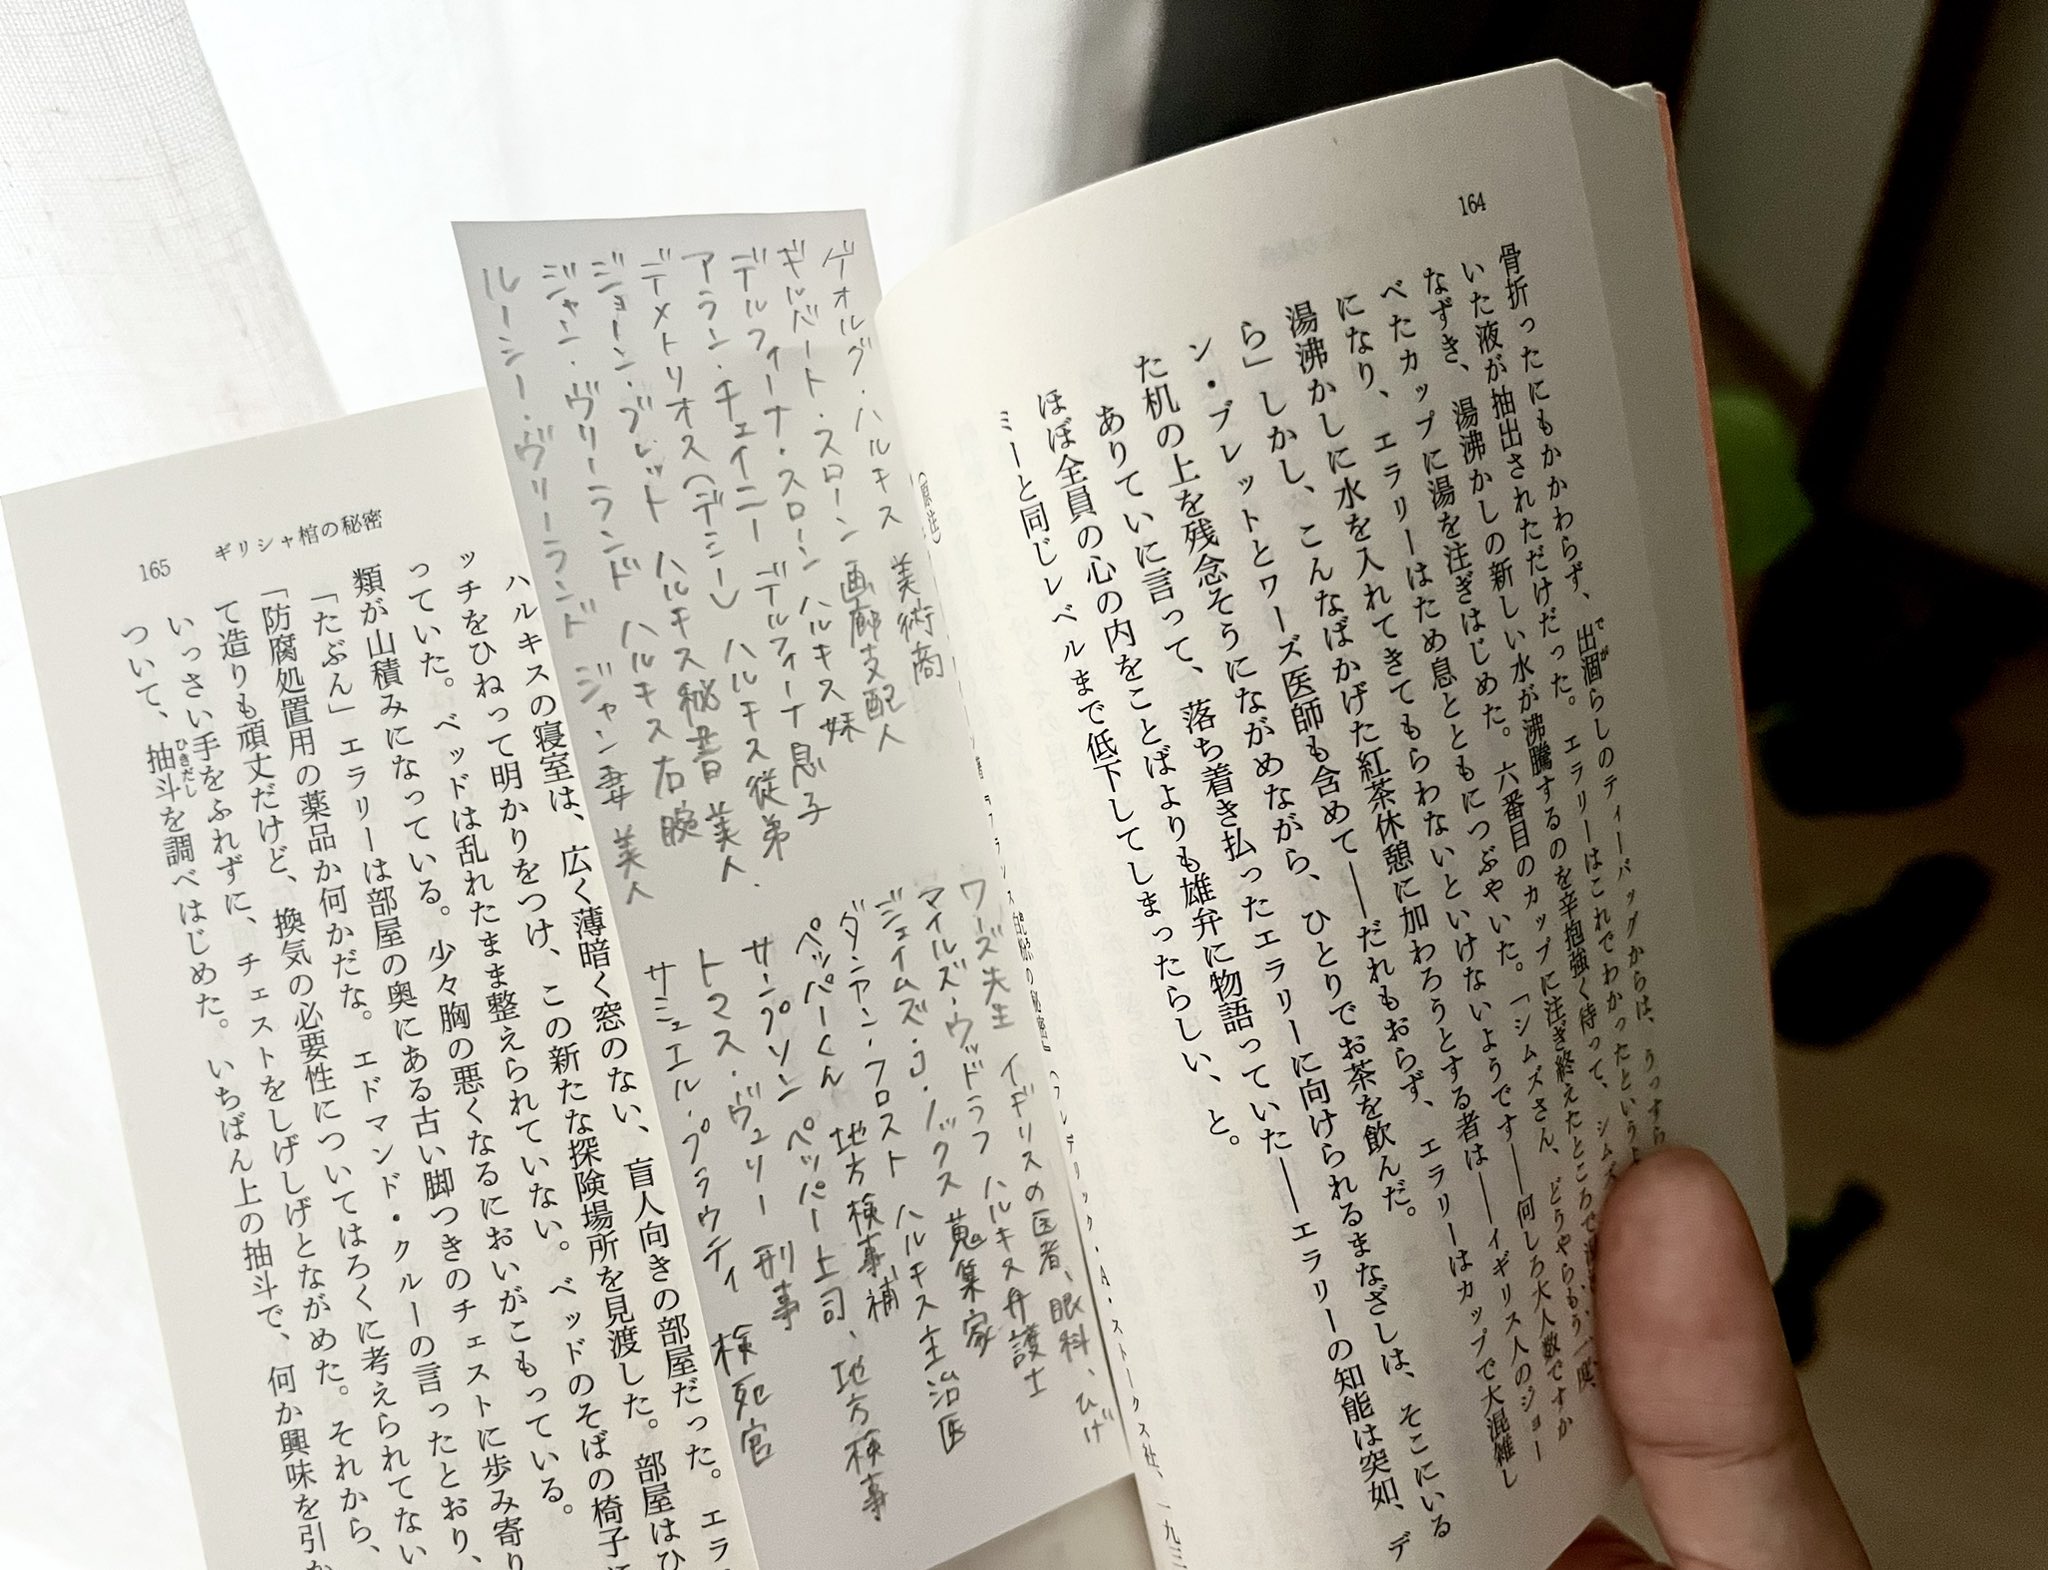 164
骨折ったにもかかわらず、出涸らしのティーバッグからは、うっすら
いた液が抽出されただけだった。エラリーはこれでわかったというよ
なずき、湯沸かしの新しい水が沸騰するのを辛抱強く待って、シムズ
べたカップに湯を注ぎはじめた。六番目のカップに注ぎ終えたところで
になり、エラリーはため息とともにつぶやいた。「シムズさん、どうやらもう一度、
湯沸かしに水を入れてきてもらわないといけないようです——何しろ大人数ですか
ら」しかし、こんなばかげた紅茶休憩に加わろうとする者は——イギリス人のジョー
ン・ブレットとワーズ医師も含めて——だれもおらず、エラリーはカップで大混雑し
た机の上を残念そうにながめながら、ひとりでお茶を飲んだ。
ありていに言って、落ち着き払ったエラリーに向けられるまなざしは、そこにいる
ほぼ全員の心の内をことばよりも雄弁に物語っていた——エラリーの知能は突如、デ
ミーと同じレベルまで低下してしまったらしい、と。
(原注)
の秘密』(フレデリック・A・ストークス社、一九三
ゲオルグ・ハルキス 美術商
ギルバート・スローン 画廊支配人
デルフィーナ・スローン ハルキス妹
アラン・チェイニー デルフィーナ息子
デメトリオス(デミー) ハルキス従弟
ジョーン・ブレット ハルキス秘書 美人.
ジャン・ヴリーランド ハルキス右腕
ルーシー・ヴリーランド ジャン妻 美人
ワーズ先生 イギリスの医者、眼科、ひげ
マイルズ・ウッドラフ ハルキス弁護士
ジェイムズ・J・ノックス 蒐集家
ダンカン・フロスト ハルキス主治医
ペッパーくん 地方検事補
サンプソン ペッパー上司、地方検事
トマス・ヴェリー 刑事
サミュエル・プラウティ 検死官
165 ギリシャ棺の秘密
ハルキスの寝室は、広く薄暗く窓のない、盲人向きの部屋だった。エラ
ッチをひねって明かりをつけ、この新たな探険場所を見渡した。部屋はひ
っていた。ベッドは乱れたまま整えられていない。ベッドのそばの椅子に
類が山積みになっている。少々胸の悪くなるにおいがこもっている。
「たぶん」エラリーは部屋の奥にある古い脚つきのチェストに歩み寄り
「防腐処置用の薬品か何かだな。エドマンド・クルーの言ったとおり、
て造りも頑丈だけど、換気の必要性についてはろくに考えられてない
いっさい手をふれずに、チェストをしげしげとながめた。それから、
ついて、抽斗を調べはじめた。いちばん上の抽斗で、何か興味を引か